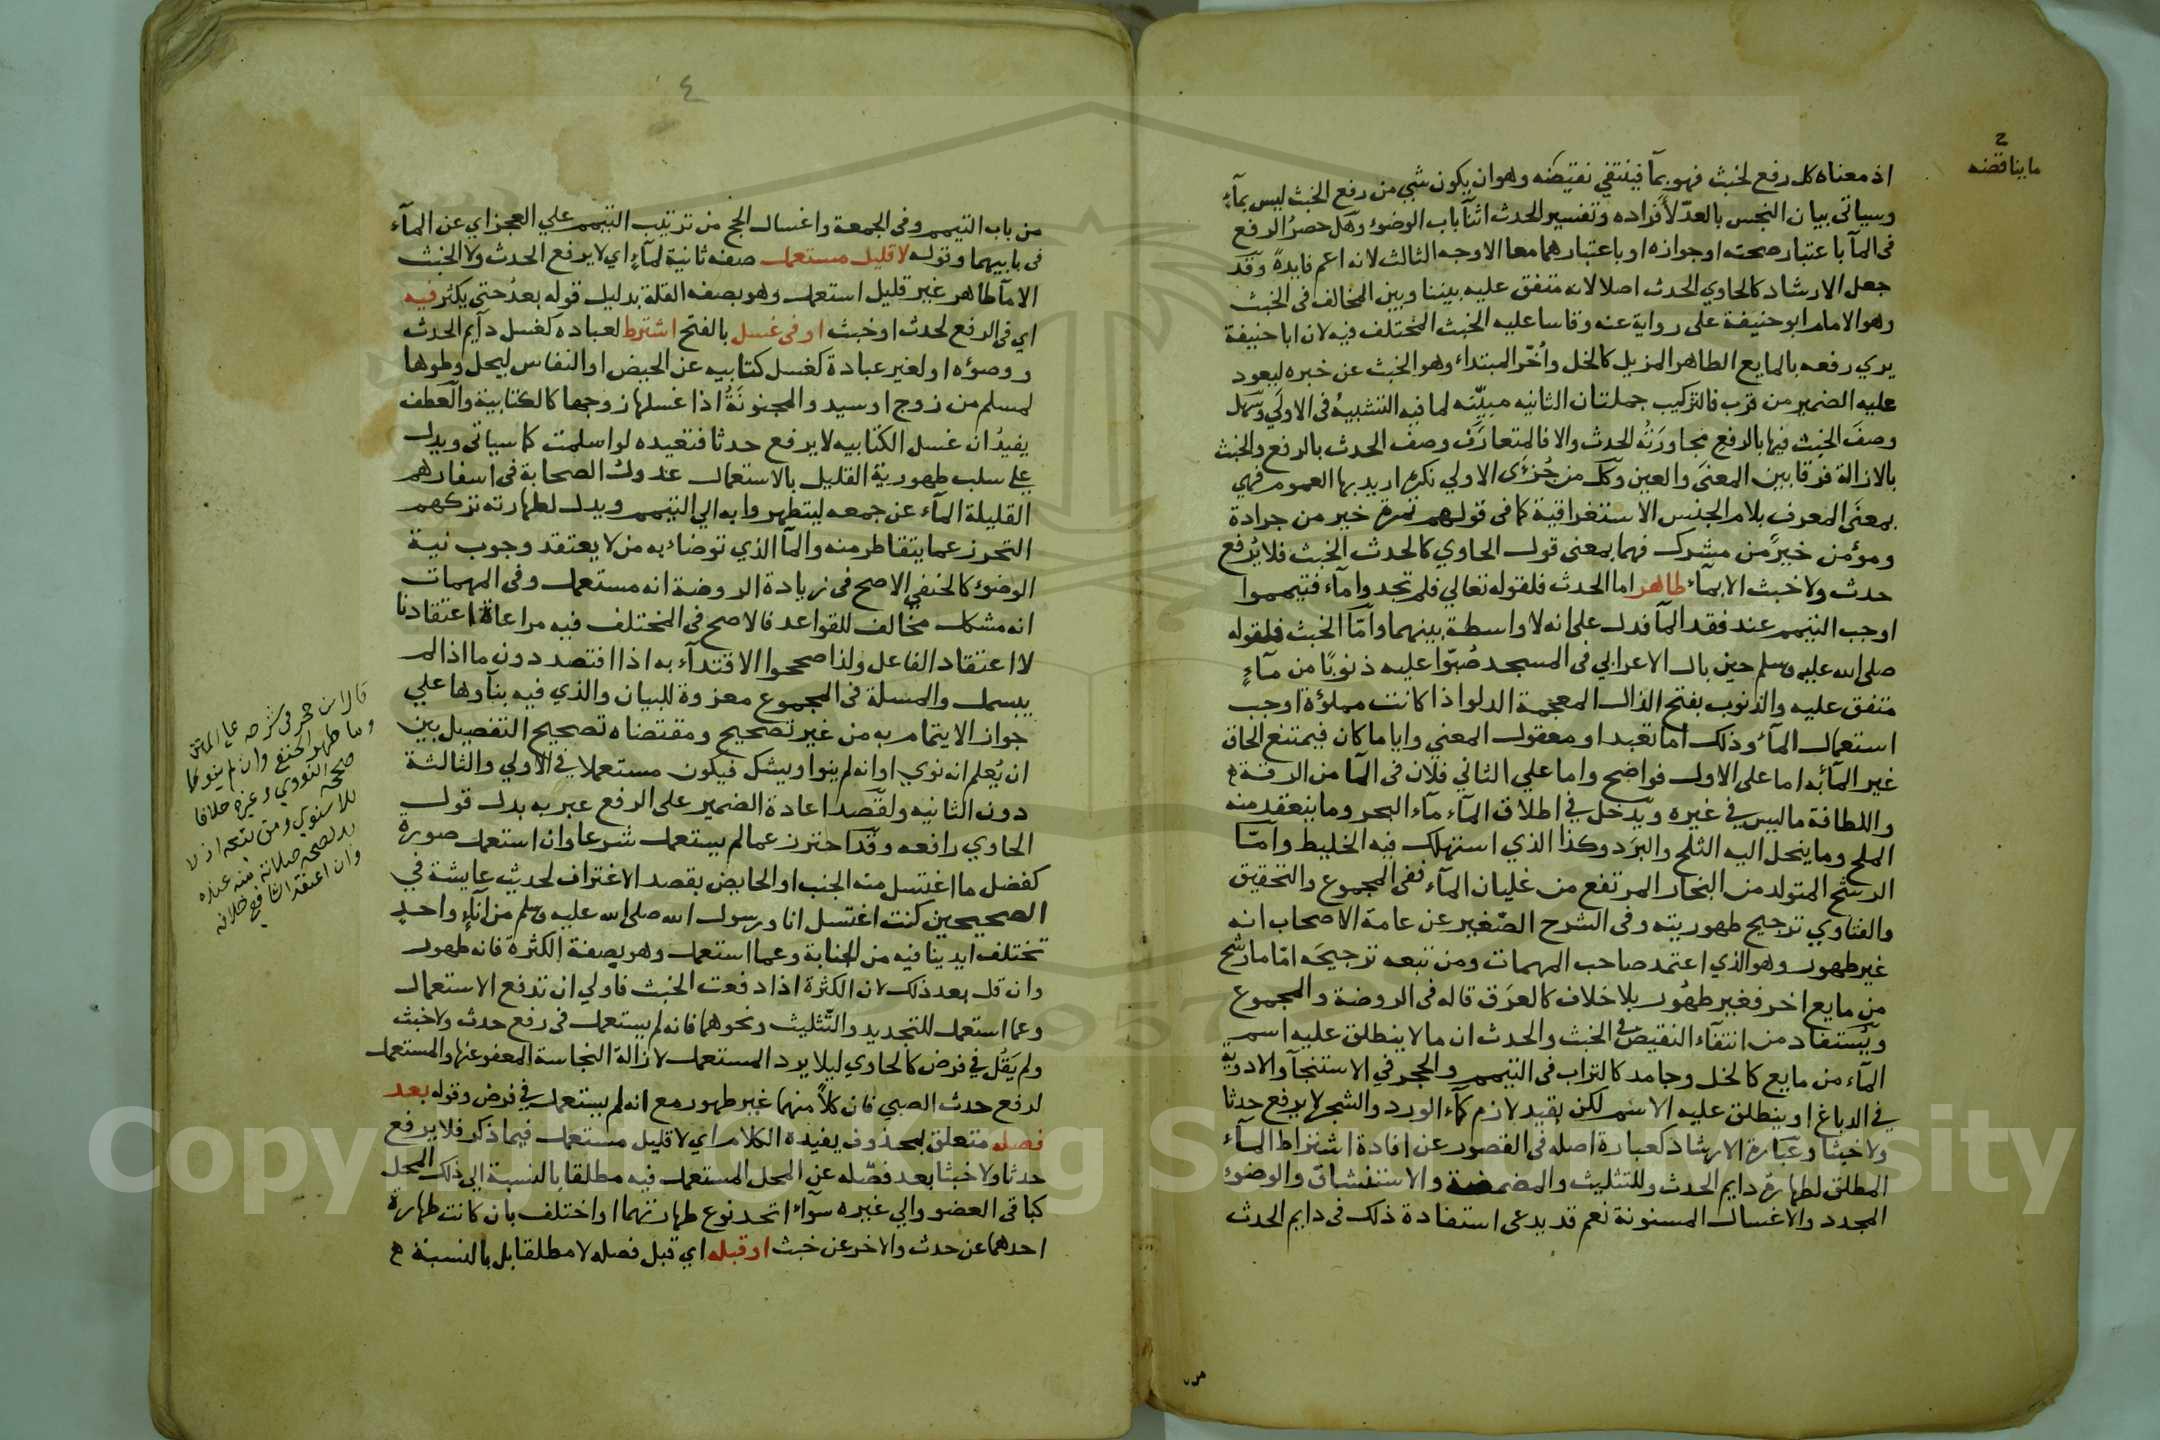 ما يناقضه
اذ معناه كل رفع لخبث فهو بمآ فينتفي نقيضه وهوان يكون شي من رفع الخبث ليس بمآء
وسياتى بيان النجس بالعدّ لأفراده وتفسير الحدث اثنآ باب الوضوء وهل حصرُ الرفع
فى المآ باعتبار صحته او جوازه او باعتبارهما معا الاوجه الثالث لانه اعم فايدة وقد
جعل الارشاد كالحاوي الحدث اصلا لانه متفق عليه بيننا وبين المخالف فى الخبث
وهو الامام ابو حنيفة على رواية عنه وقاسا عليه الخبث المختلف فيه لان ابا حنيفة
يري رفعه بالمايع الطاهر المزيل كالخل واُخّر المبتداء وهو الخبث عن خبره ليعود
عليه الضمير من قرب فالتركيب جملتان الثانيه مبيّنه لما فيه التشبيهُ فى الاولَي وسهّل
وصفَ الخبث فيها بالرفعِ مجاورَتُه للحدث والا فالمتعارَف وصف الحدث بالرفع والخبث
بالازالة فرقا بين المعنىَ والعين وكل من جُزئَى الاولي نكرة اريد بها العموم فهي
بمعنَى المعرف بلام الجنس الاستغراقية كما فى قولهم تمرة خير من جرادة
ومؤمن خيرً من مشرك فهما بمعنى قول الحاوي كالحدث الخبث فلا يُرفع
حدث ولا خبث الا بمآء طاهر اما الحدث فلقوله تعالي فلم تجدوا مآء فتيمموا
اوجب التيمم عند فقد المآ فدل على انه لا واسطة بينهما وامّا الخبث فلقوله
صلى الله عليه وسلم حين بال الاعرابي فى المسجد صُبّوا عليه ذنوبًا من مآءٍ
متفق عليه والذنوب بفتح الذال المعجمة الدلو اذا كانت مملؤة اوجب
استعمال المآء وذلك اما تعبد او معقول المعني وايا ما كان فيمتنع الحاق
غير المآء به اما على الاول فواضح واما علي الثاني فلان فى المآ من الرقة
واللطافة ما ليس في غيره ويدخل في اطلاق المآء مآء البحر وما ينعقد منه
الملح وما ينحل اليه الثلج والبرَد وكذا الذي استهلك فيه الخليط وامّا
الرشح المتولد من البخار المرتفع من غليان المآء ففى المجموع والتحقيق
والفتاوي ترجيح طهوريته وفى الشرح الصّغير عن عامة الاصحاب انه
غير طهور وهو الذي اعتمد صاحب المهمات ومن تبعه ترجيحَه امّا ما رشح
من مايع اخر فغير طهُور بلا خلاف كالعرَق قاله فى الروضة والمجموع
ويُستفاد من انتفآء النقيض فى الخبث والحدث ان ما لا ينطلق عليه اسم
المآء من مايع كالخل وجامد كالتراب فى التيمم والحجر في الاستنجآ والادوية
في الدباغ او ينطلق عليه الاسم لكن بقيد لازم كمآء الورد والشجر لا يرفع حدثا
ولا خبثا وعبارة الارشاد كعبارة اصله فى القصور عن افادة اشتراط المآء
المطلق لطهارة دايم الحدث وللتثليث والمضمضة والاستنشاق والوضوء
المجدد والاغسال المسنونة نعم قد يدعى استفادة ذلك فى دايم الحدث
٤
من باب التيمم وفى الجمعة واغسال الحج من ترتيب التيمم علي العجز اي عن المآء
فى بابيهما وقوله لا قليل مستعمل صفه ثانية لمآءٍ اي لا يرفع الحدث ولا الخبث
الا مآ طاهر غير قليل استعمل وهو بصفه القلة بدليل قوله بعدُ حتى يكثر فيه
اي فى الرفع لحدث او خبث او فى غسل بالفتح اشترط لعباده كغسل دآيم الحدث
ووضوُه او لغير عبادة كغسل كتابيه عن الحيض او النفاس ليحل وطوها
لمسلم من زوج او سيد والمجنونةُ اذا غسلها زوجها كالكتابية والعطف
يفيدُ ان غسل الكتابيه لا يرفع حدثا فتعيده لو اسلمت كما سياتى ويدل
على سلب طهورية القليل بالاستعمال عدول الصحابة فى اسفارهم
القليلة المآء عن جمعه ليتطهروا به الي التيمم ويدل لطهارته تركهم
التحرز عما يتقاطر منه والمآ الذي توضاء به من لا يعتقد وجوب نية
الوضوء كالحنفي الاصح فى زيادة الروضة انه مستعمل وفى المهمات
انه مشكل مخالف للقواعد فالاصح فى المختلف فيه مراعاة اعتقادنا
لا اعتقاد الفاعل ولذا صححوا الاقتدآء به اذا افتصد دون ما اذا لم
يبسمل والمسلة فى المجموع معزوة للبيان والذي فيه بنآوها علي
جواز الايتمام به من غير تصحيح ومقتضاه تصحيح التفصيل بين
ان يُعلم انه نوي او انه لم ينو او يشك فيكون مستعملا في الاولي والثالثة
دون الثانيه ولقصد اعادة الضمير على الرفع عبر به بدل قول
الحاوي رافعه وقد احترز عما لم يستعمل شرعا وان استعمل صورة
كفضل ما اغتسل منه الجنب او الحايض بقصد الاغتراف لحديث عايشة في
الصحيحين كنت اغتسل انا ورسول الله صلى الله عليه وسلم من انآءٍ واحدٍ
تختلف ايدينا فيه من الجنابة وعما استعمل وهو بصفة الكثرة فانه طهور
وان قل بعد ذلك لان الكثرة اذا دفعت الخبث فاولي ان تدفع الاستعمال
وعما استعمل للتجديد والتّثليث ونحوهما فانه لم يستعمل فى رفع حدث ولا خبث
ولم يَقُل في فرض كالحاوي ليلا يرد المستعمل لازالة النجاسة المعفو عنها والمستعمل
لرفع حدث الصبي فان كلاً منهما غير طهور مع انه لم يستعمل في فرض وقوله بعد
فصله متعلق بمحذوف يفيده الكلام اي لا قليل مستعمل فيما ذكر فلا يرفع
حدثا ولا خبثا بعد فصله عن المحل المستعمل فيه مطلقا بالنسبة الي ذلك المحل
كباقى العضو والي غيره سوآء اتحد نوع طهارتهما او اختلف بان كانت طهارة
احدهما عن حدث والاخر عن خبث او قبله اي قبل فصله لا مطلقا بل بالنسبة
قال ابن حجر فى شرحه على المتن
وما طهر الحنفي وان لم ينو كما
صححه النووي وغيره خلافا
للاسنوي ومن تبعه اذ لا
بد لصحة صلاته منه عنده
وان اعتقد الشافعي خلافه
Copyright © King Saud University
1957